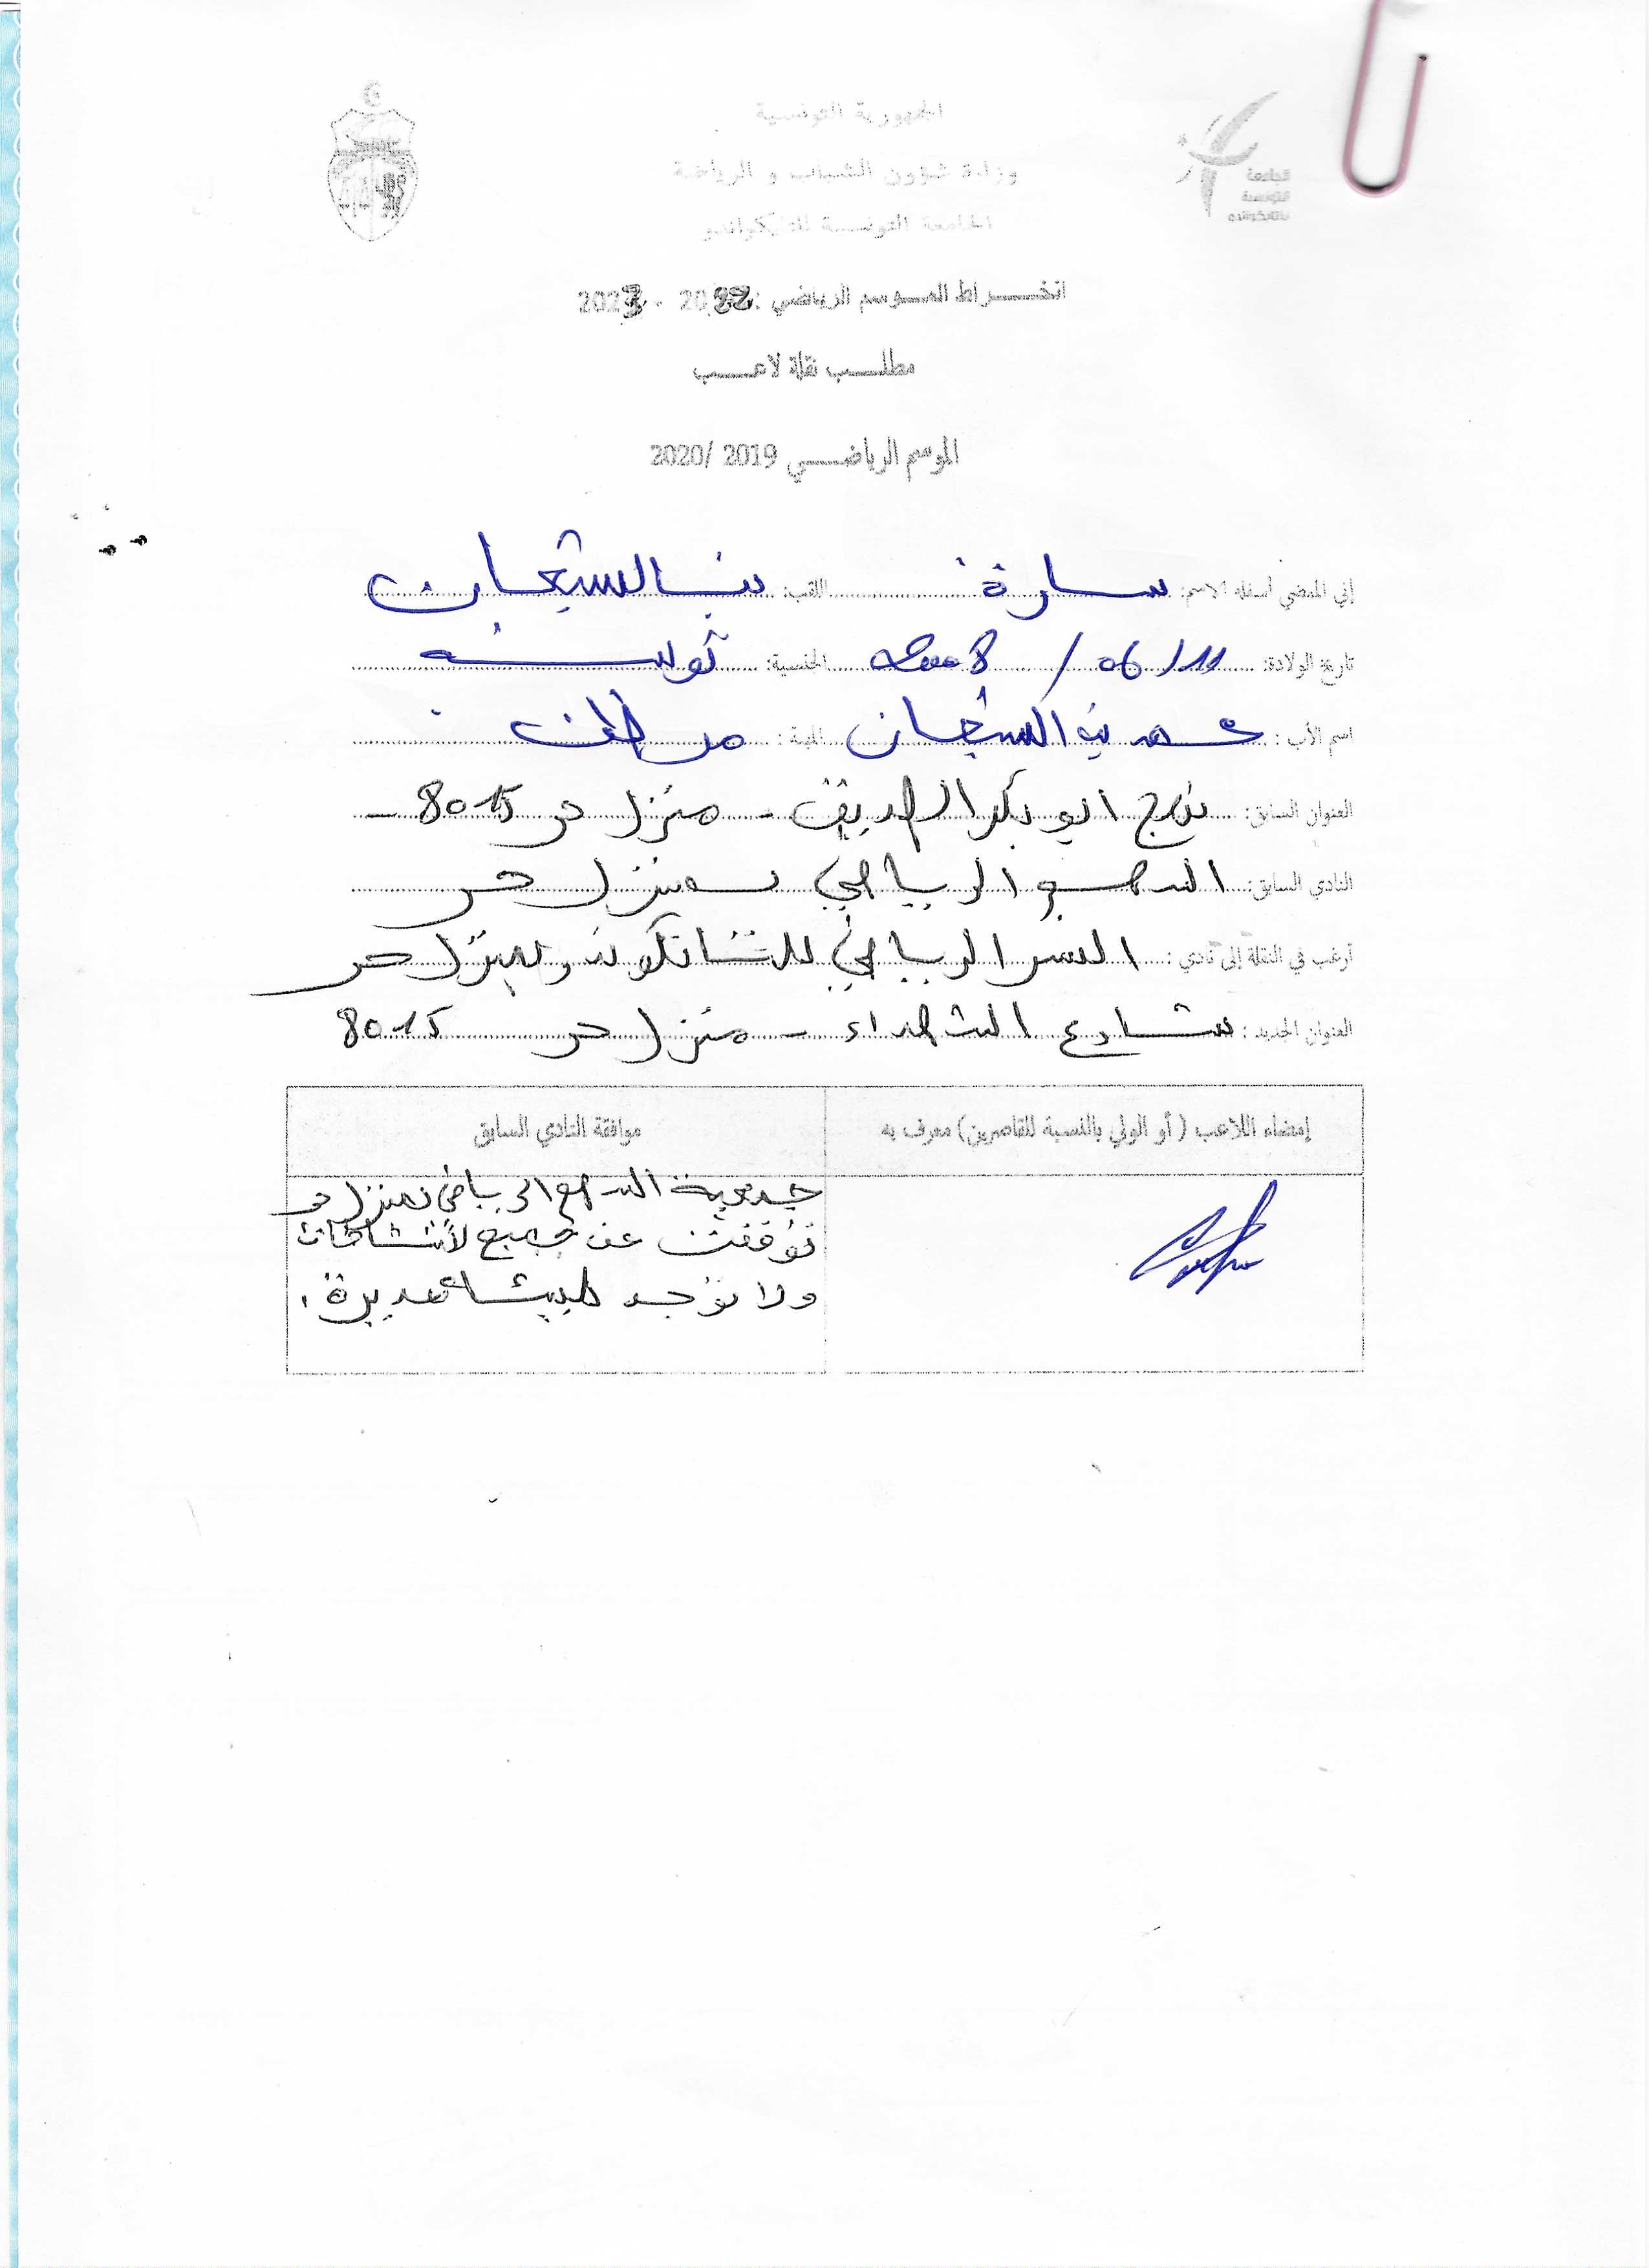 الجمهورية التونسية
وزارة شؤون الشباب و الرياضة
الجامعة التونسية للتايكواندو
الجامعة
التونسية
للتايكواندو
انخراط الموسم الرياضي : 2022 - 2023
مطلب نقلة لاعب
الموسم الرياضي 2019 /2020
إني الممضي أسفله الاسم: سارة اللقب: بن الشعبان
تاريخ الولادة: 11/ 06 / 2008 الجنسية: تونسية
اسم الأب : بن الشعبان المهنة : موظف
العنوان السابق: نهج ابو بكر الصديق - منزل حر 8015 -
النادي السابق: الرياضي بمنزل حر
أرغب في النقلة إلى نادي : النسر الرياضي للتايكواندو بمنزل حر
العنوان الجديد : شارع الشهداء - منزل حر 8015
إمضاء اللاعب ( أو الولي بالنسبة للقاصرين) معرف به
موافقة النادي السابق
جمعية الرياضي بمنزل حر
توقفت عن جميع الأنشطات
ولا توجد هيئة مديرة .